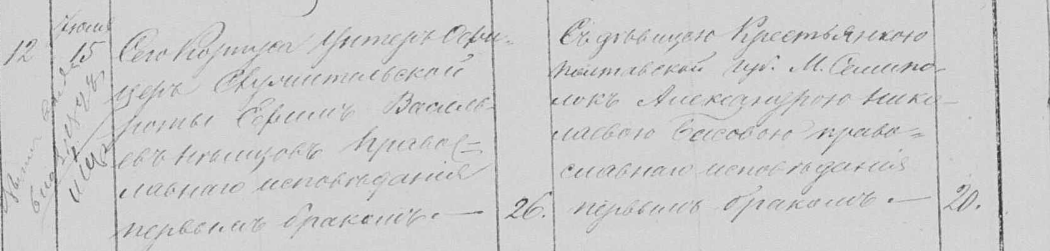 12
Июля
15
Сего Корпуса Унтеръ Офи-
церъ Служительской
роты Ефимъ Василь-
евъ Право-
славнаго исповѣданія
первымъ бракомъ. —
26.
Съ дѣвицею Крестьянкою
Полтавской губ. М. Семипо-
локъ Александрою Нико-
лаевою Басовою право-
славнаго исповѣданія
первымъ бракомъ. —
20.